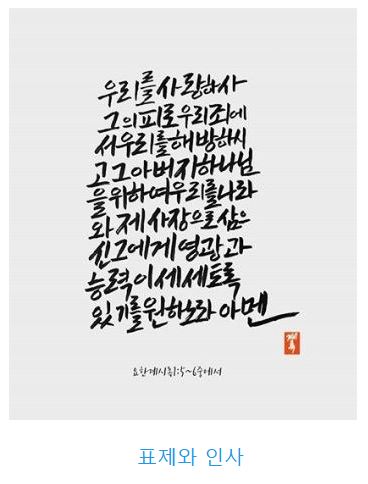 우리를 사랑하사
그의 피로 우리 죄에
서 우리를 해방하시
고 그 아버지 하나님
을 위하여 우리를 나라
와 제사장으로 삼으
신 그에게 영광과
능력이 세세토록
있기를 원하노라 아멘
요한계시록1:5~6중에서
표제와 인사